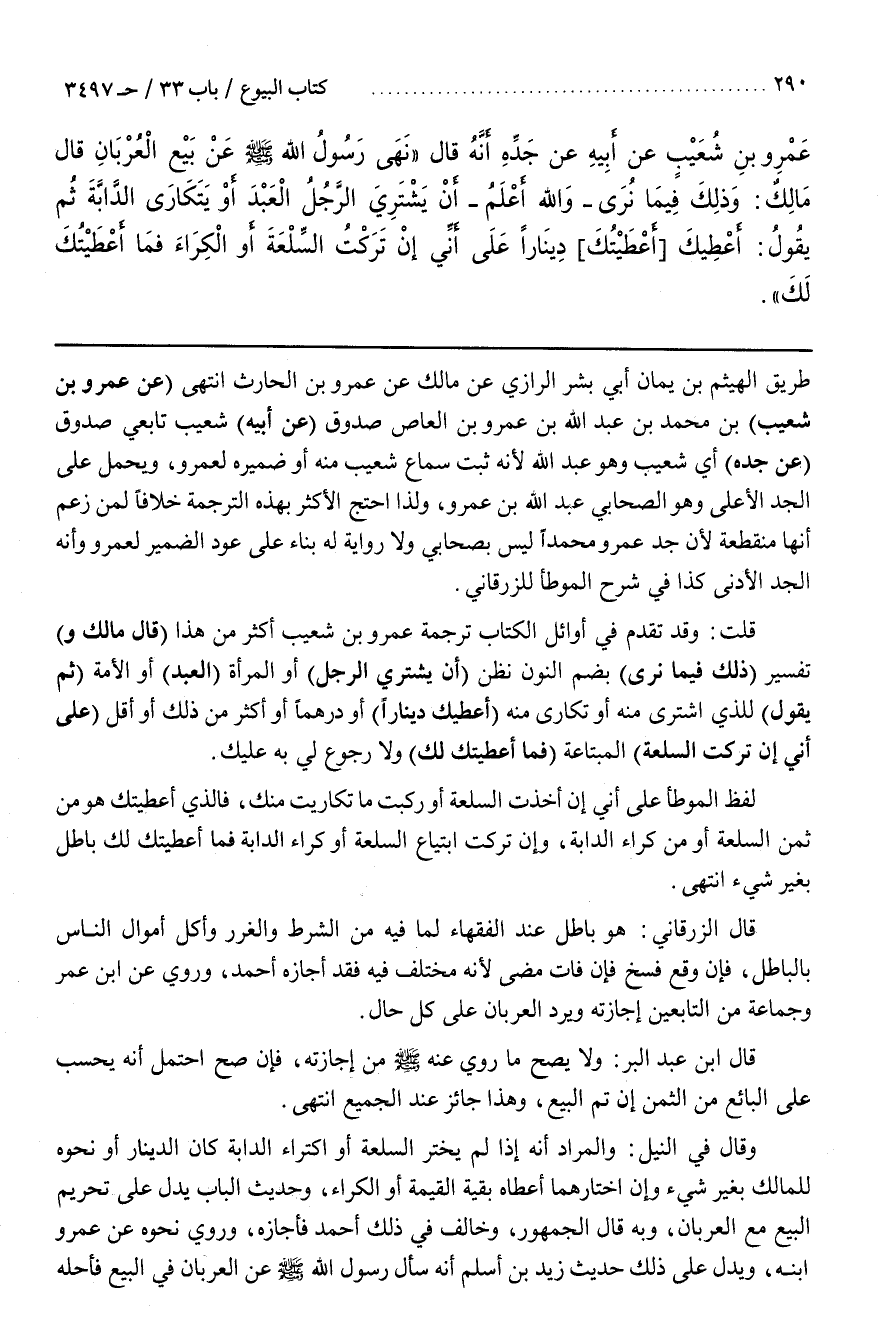 ٢٩٠ ................................................ كتاب البيوع / باب ٣٣ / حـ ٣٤٩٧
عَمْرِو بنِ شُعَيْبٍ عن أَبِيهِ عن جَدِّهِ أَنَّهُ قال «نَهَى رَسُولُ الله ﷺ عَنْ بَيْعِ الْعُرْبَانِ قال
مَالِكٌ: وَذلِكَ فِيمَا نُرَى ـ وَالله أَعْلَمُ ـ أَنْ يَشْتَرِيَ الرَّجُلُ الْعَبْدَ أَوْ يَتَكَارَى الدَّابَّةَ ثُم
يقُولُ: أُعْطِيكَ [أَعْطَيْتُكَ] دِينَاراً عَلَى أَنِّي إنْ تَرَكْتُ السِّلْعَةَ أَو الْكِرَاءَ فمَا أَعْطَيْتُكَ
لَكَ».
طريق الهيثم بن يمان أبي بشر الرازي عن مالك عن عمرو بن الحارث انتهى (عن عمرو بن
شعيب) بن محمد بن عبد الله بن عمرو بن العاص صدوق (عن أبيه) شعيب تابعي صدوق
(عن جده) أي شعيب وهو عبد الله لأنه ثبت سماع شعيب منه أو ضميره لعمرو، ويحمل على
الجد الأعلى وهو الصحابي عبد الله بن عمرو، ولذا احتج الأكثر بهذه الترجمة خلافاً لمن زعم
أنها منقطعة لأن جد عمرو محمداً ليس بصحابي ولا رواية له بناء على عود الضمير لعمرو وأنه
الجد الأدنى كذا في شرح الموطأ للزرقاني.
قلت: وقد تقدم في أوائل الكتاب ترجمة عمرو بن شعيب أكثر من هذا (قال مالك و)
تفسير (ذلك فيما نرى) بضم النون نظن (أن يشتري الرجل) أو المرأة (العبد) أو الأمة (ثم
يقول) للذي اشترى منه أو تكارى منه (أعطيك ديناراً) أو درهماً أو أكثر من ذلك أو أقل (على
أني إن تركت السلعة) المبتاعة (فما أعطيتك لك) ولا رجوع لي به عليك.
لفظ الموطأ على أني إن أخذت السلعة أو ركبت ما تكاريت منك، فالذي أعطيتك هو من
ثمن السلعة أو من كراء الدابة، وإن تركت ابتياع السلعة أو كراء الدابة فما أعطيتك لك باطل
بغير شيء انتهى.
قال الزرقاني: هو باطل عند الفقهاء لما فيه من الشرط والغرر وأكل أموال النـاس
بالباطل، فإن وقع فسخ فإن فات مضى لأنه مختلف فيه فقد أجازه أحمد، وروي عن ابن عمر
وجماعة من التابعين إجازته ويرد العربان على كل حال.
قال ابن عبد البر: ولا يصح ما روي عنه ﷺ من إجازته، فإن صح احتمل أنه يحسب
على البائع من الثمن إن تم البيع، وهذا جائز عند الجميع انتهى.
وقال في النيل: والمراد أنه إذا لم يختر السلعة أو اكتراء الدابة كان الدينار أو نحوه
للمالك بغير شيء وإن اختارهما أعطاه بقية القيمة أو الكراء، وحديث الباب يدل على تحريم
البيع مع العربان، وبه قال الجمهور، وخالف في ذلك أحمد فأجازه، وروي نحوه عن عمرو
ابنـه، ويدل على ذلك حديث زيد بن أسلم أنه سأل رسول الله ﷺ عن العربان في البيع فأحله